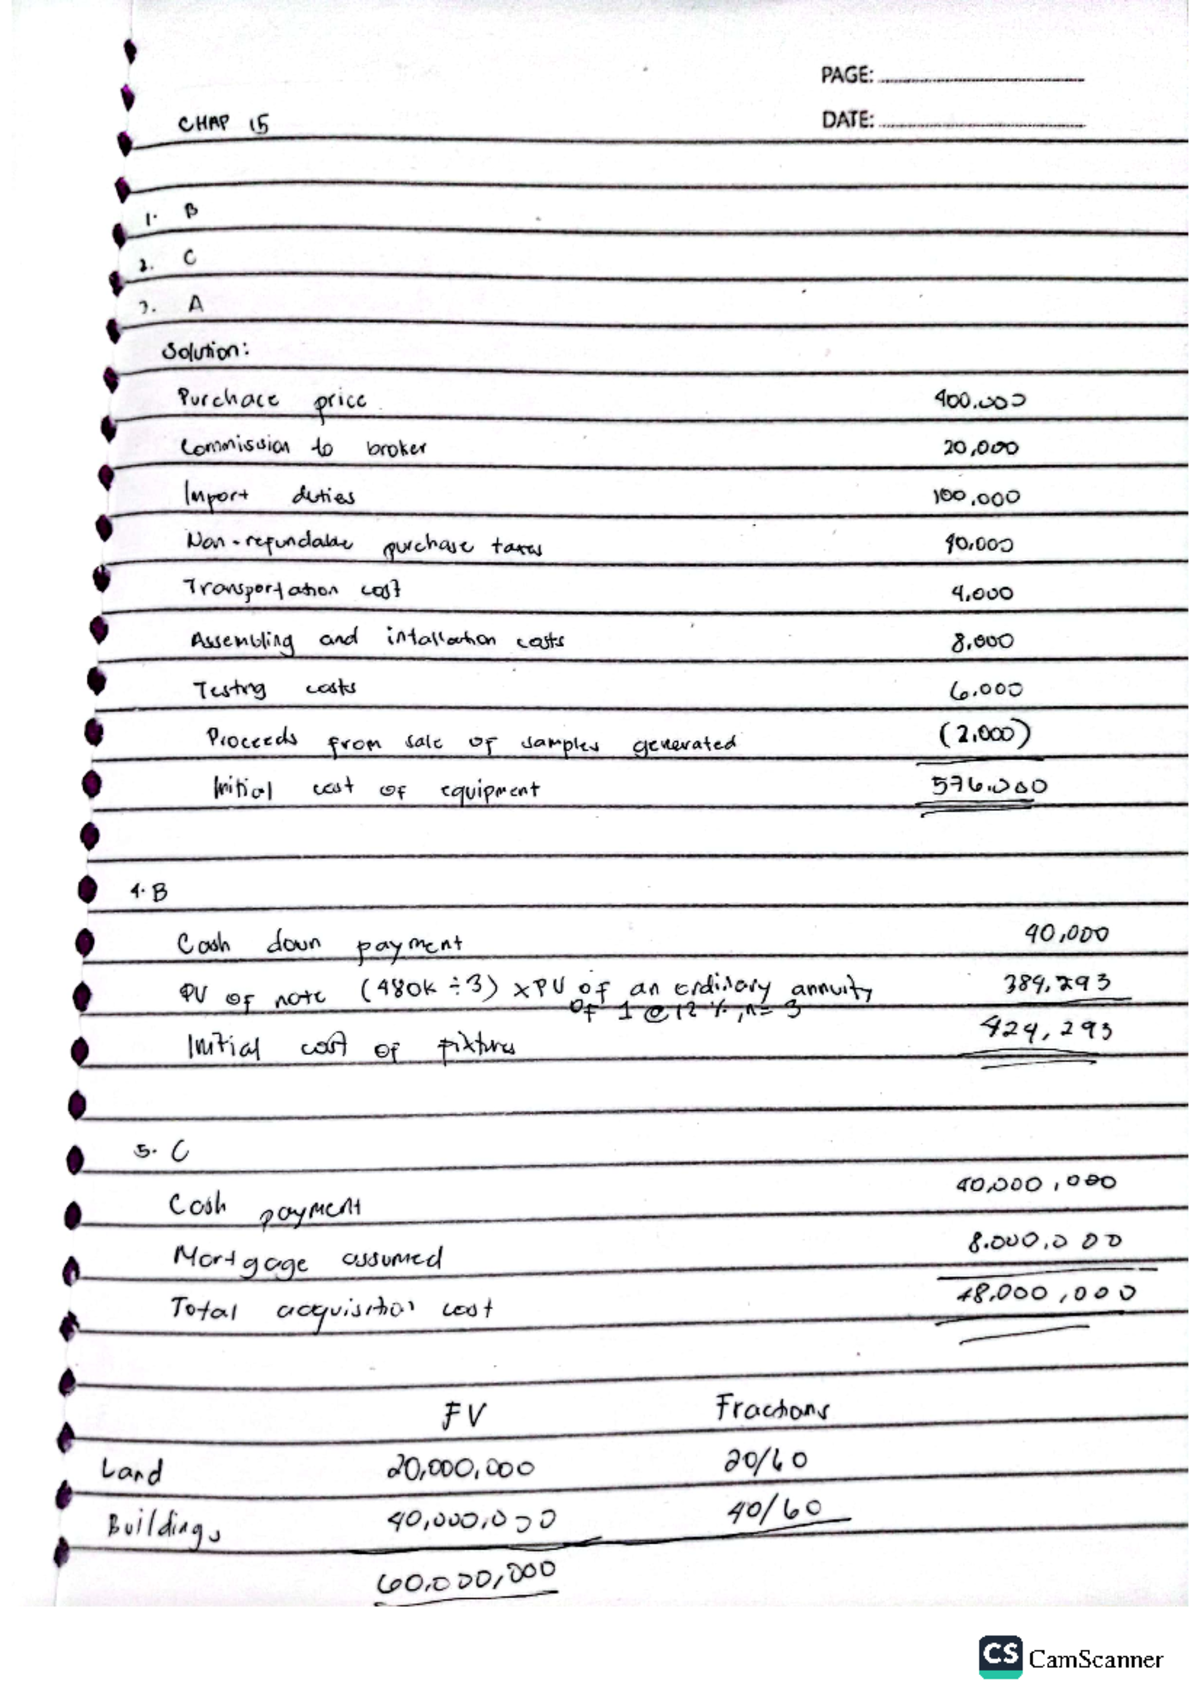 PAGE:
DATE:
CHAP 15
1. B
2. C
3. A
Solution:
Purchace price 400.000
Commission to broker 20,000
Import duties 100.000
Non-refundable purchase taxes 40.000
Transportation cost 4.000
Assembling and intallation costs 8.000
Testing costs 6.000
Proceeds from sale of samples generated (2.000)
Initial cost of equipment 576.000
4. B
Cash down payment 40,000
PV of note (480k ÷ 3) x PV of an ordinary annuity 384,293
of 1 @ 12%, n= 3
Initial cost of fixtures 424,293
5. C
Cash payment 40,000,000
Mortgage assumed 8.000,000
Total acquisition cost 48,000,000
FV Fractions
Land 20,000,000 20/60
Buildings 40,000,000 40/60
60.000,000
CS CamScanner